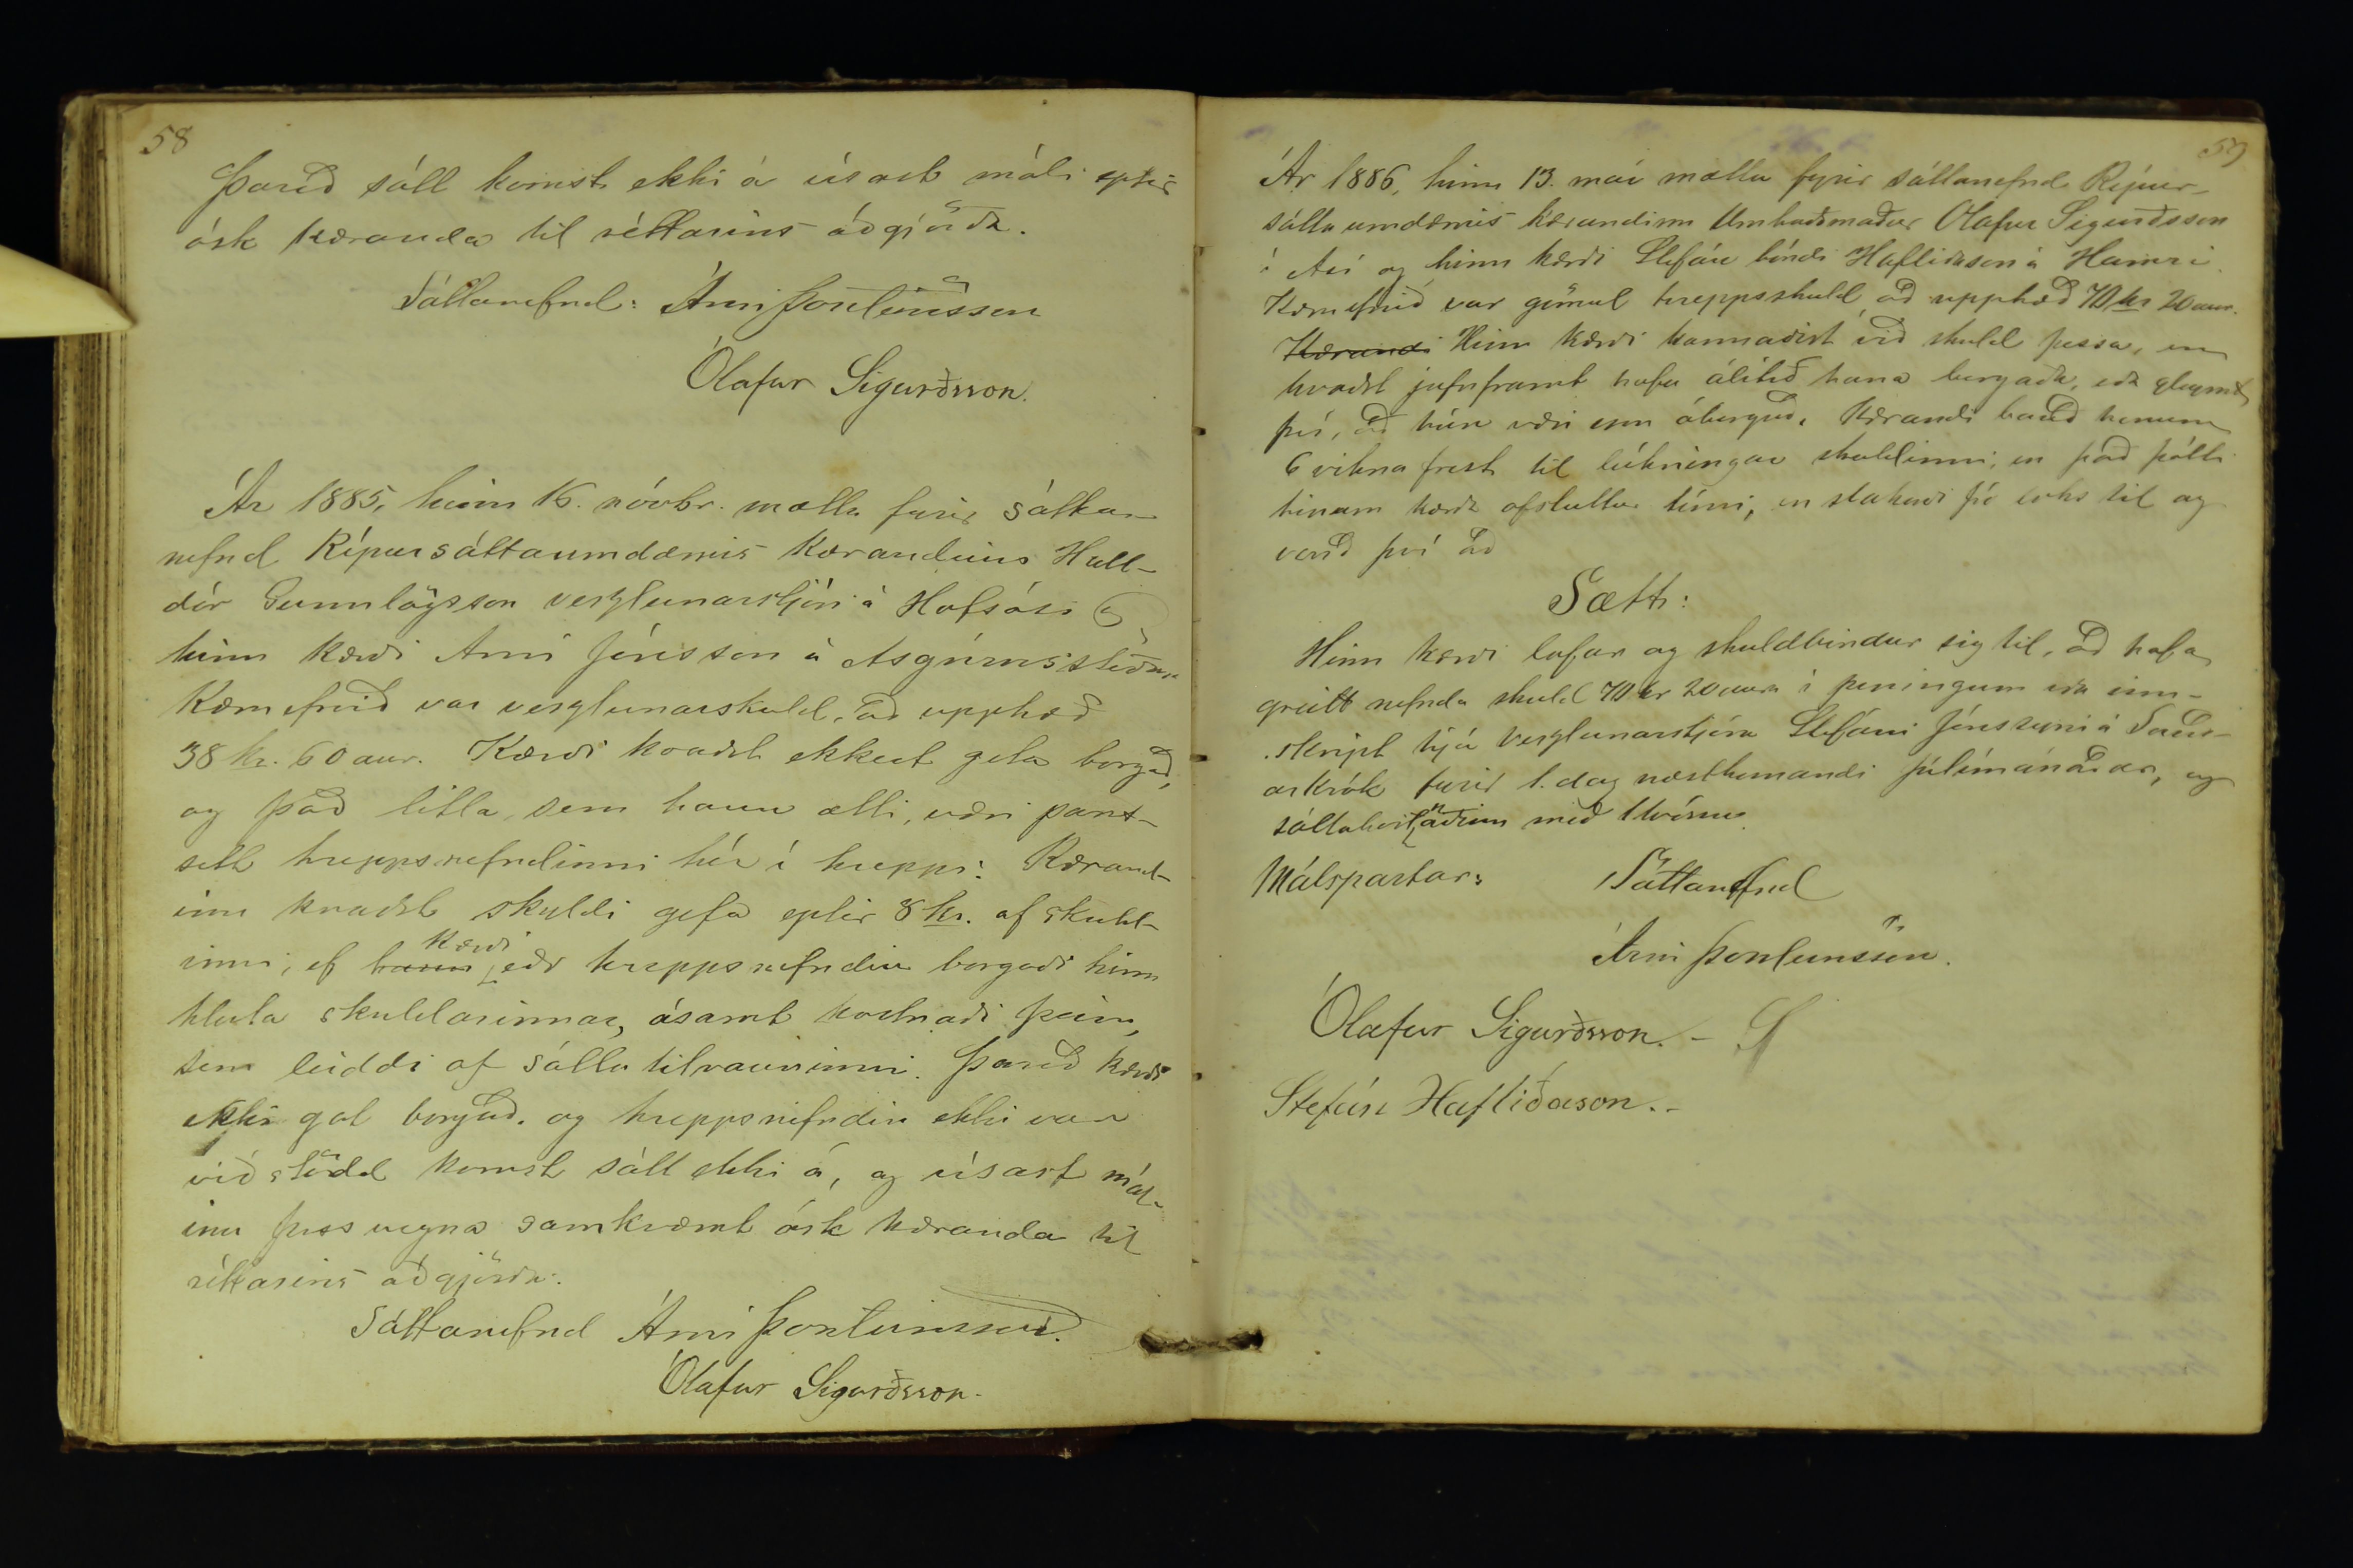 58
Þareð sátt komst ekki á úsast máli eptir
ósk kæranda til réttarins aðgjörða.
Sáttanefnd: Árni Þorleifsson
Ólafur Sigurðsson.
Ár 1885, hinn 16. nóvbr. mættu fyrir sátta-
nefnd Rípursáttaumdæmis kærandinn Hall-
dór Gunnlögsson verzlunarstjóri á Hofsósi og
hinn kærði Árni Jónsson á Ásgrímsstöðum
Kæruefnið var verzlunarskuld, að upphæð
38 kr. 60 aur. Kærði kvaðst ekkert geta borgað,
og það litla, sem hann ætti, væri pant-
sett hreppsnefndinni hér í hreppi. Kærand-
inn kvaðst skyldi gefa eptir 8 kr. af skuld-
inni, ef hann kærði eða hreppsnefndin borgaði hinn
hluta skuldarinnar, ásamt kostnaði þeim,
sem leiddi af sáttatilrauninni. Þareð kærði
ekki gat borgað, og hreppsnefndin ekki var
viðstödd komst sátt ekki á, og úsast mál-
inu þess vegna samkvæmt ósk kæranda til
réttarins aðgjörða.
Sáttanefnd Árni Þorleifsson.
Ólafur Sigurðsson.
59
Ár 1886, hinn 13. maí mættu fyrir sáttanefnd Rípur-
sáttaumdæmis kærandinn Umboðsmaður Ólafur Sigurðsson
í Ási og hinn kærði Stefán bóndi Hafliðason á Hamri.
Kæruefnið var gömul hreppsskuld að upphæð 70 kr 20 aur.
Kærandi Hinn kærði kannaðist við skuld þessa, en
kvaðst jafnframt hafa álitið hana borgaða, eða gleymt
því, að hún væri enn óborguð. Kærandi bauð honum
6 vikna frest til lúkningar skuldinni, en það þótti
hinum kærða ofstuttur tími, en slakaði þó loks til og
varð því að
Sætt:
Hinn kærði lofar og skuldbindur sig til, að hafa
greitt nefnda skuld 70 kr 20 aura í peningum eða inn-
skript hjá verzlunarstjóra Stefáni Jónssyni á Sauð-
arkrók fyrir 1. dag næstkomandi júlímánaðar, og
sáttakostnaðinn með 1 krónu
Málspartar: Sáttanefnd
Árni Þorleifsson.
Ólafur Sigurðsson. -
Stefán Hafliðason. -